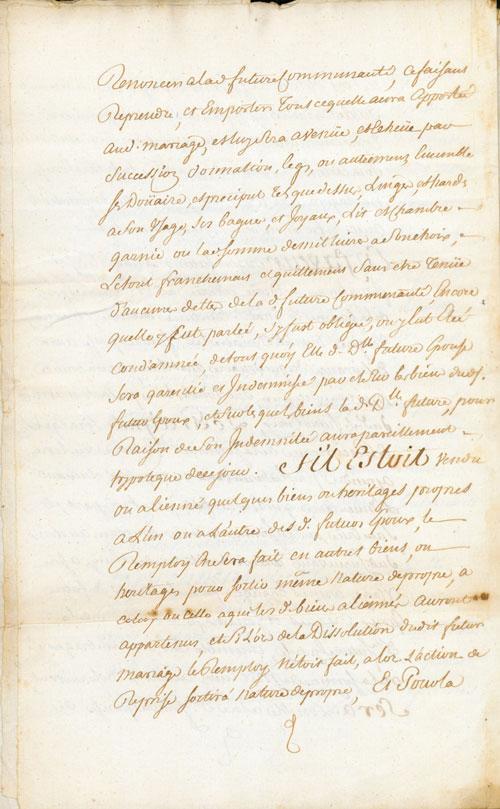 Renoncer a lad. future Communauté, ce faisant
Reprendre, et Emporter tous ce quelle aura Apporté
aud. mariage, et luy sera avenüe, et Echeüe par
succession donnation, legs, ou autrement Ensemble
ses Doüaire, et preciput tels que dessus, Linge et hardes
a son Usage, ses bagues, et Joyaux, Lit et chambre
garnie ou la somme de mil livres a son choix,
Le tout franchement et quittement sans être tenüe
d'aucune dette de la d. future Communauté Encore
quelle y fut parlée, s'y fust obligée, ou y eut été
condamnée, de tous quoy Elle d. Dlle. future Epouse
sera garentie et Indemnisée par et sur les biens dud.
futur Epoux, et sur lequels biens la d. Dlle. future, pour
Raison de son Indemnitée aura pareillement
hypoteque de ce jour. S'il Estoit vendu
ou alienné quelques biens ou heritages propres
a L'un ou a L'autre des d. futurs Epoux, le
Remploy En sera fait en autres biens, ou
heritages pour sortir même Nature de propre, a
celuy ou celle aquels les d. biens aliennés auront
appartenus, et si Lors de la Dissolution dudit futur
mariage le Remploy N'étoit fait, alors L'action de
Reprise sortira Nature de propre, Et Pour la